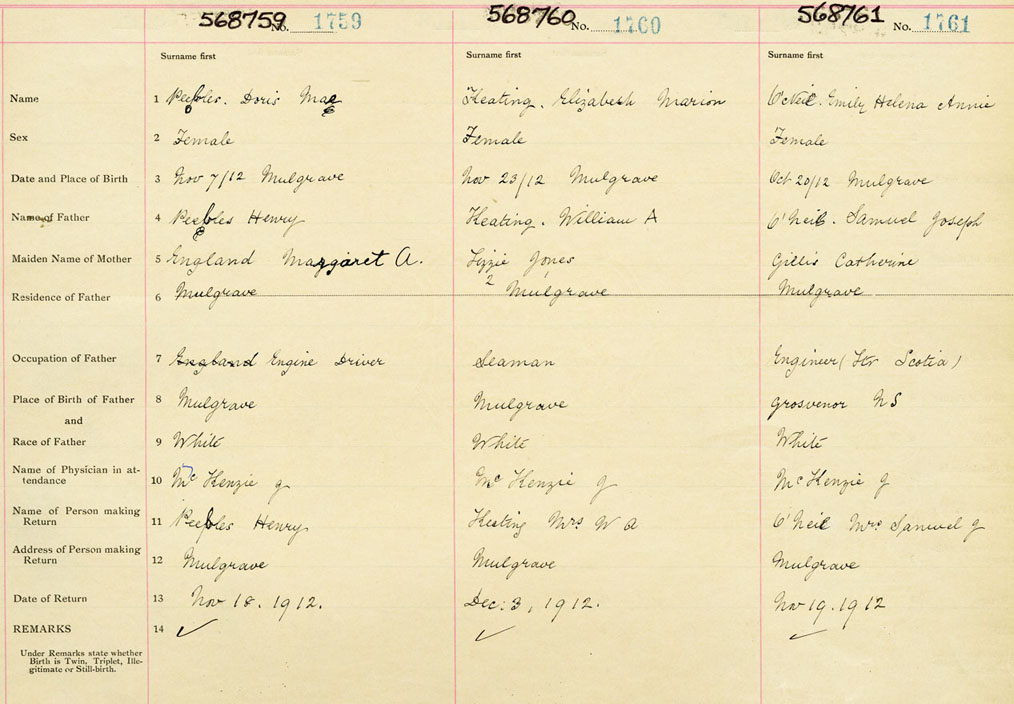 568759 No. 1759 568760 No. 1760 568761 No. 1761
Surname first Surname first Surname first
Name 1 Peebles. Doris Mae Keating. Elizabeth Marion O'Neil. Emily Helena Annie
Sex 2 Female Female Female
Date and Place of Birth 3 Nov 7/12 Mulgrave Nov 23/12 Mulgrave Oct 20/12 Mulgrave
Name of Father 4 Peebles Henry Keating. William A O'Neil. Samuel Joseph
Maiden Name of Mother 5 England Margaret A. Lizzie Jones Gillis Catherine
Residence of Father 6 Mulgrave 2 Mulgrave Mulgrave
Occupation of Father 7 England Engine Driver Seaman Engineer (Str Scotia)
Place of Birth of Father 8 Mulgrave Mulgrave Grosvenor NS
and
Race of Father 9 White White White
Name of Physician in at-
tendance 10 Mc Kenzie J Mc Kenzie J Mc Kenzie J
Name of Person making
Return 11 Peebles Henry Keating Mrs W A O'Neil Mrs Samuel J
Address of Person making
Return 12 Mulgrave Mulgrave Mulgrave
Date of Return 13 Nov 18. 1912. Dec. 3, 1912. Nov 19. 1912
REMARKS 14 ✓ ✓ ✓
Under Remarks state whether
Birth is Twin, Triplet, Ille-
gitimate or Still-birth.